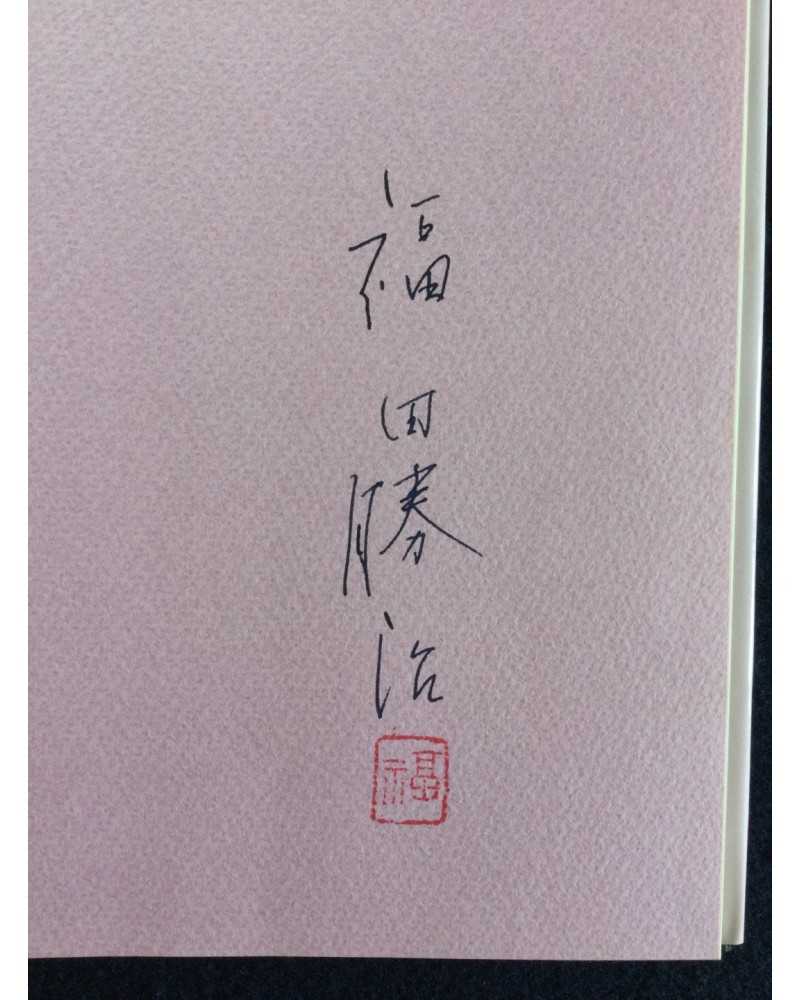 福田勝治
福